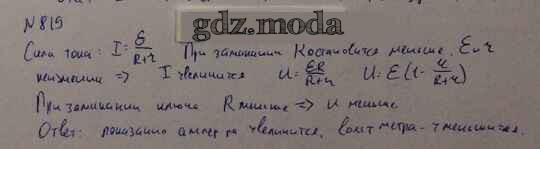 N 819
gdz.moda
Сила тока: I = ℰ/(R+r) При замыкании R становится меньше, ℰ и r
неизменны => I увеличится U = ℰR/(R+r) U = ℰ(1 - r/(R+r))
При замыкании ключа R меньше => U меньше
Ответ: показание амперметра увеличится, вольтметра - уменьшится.